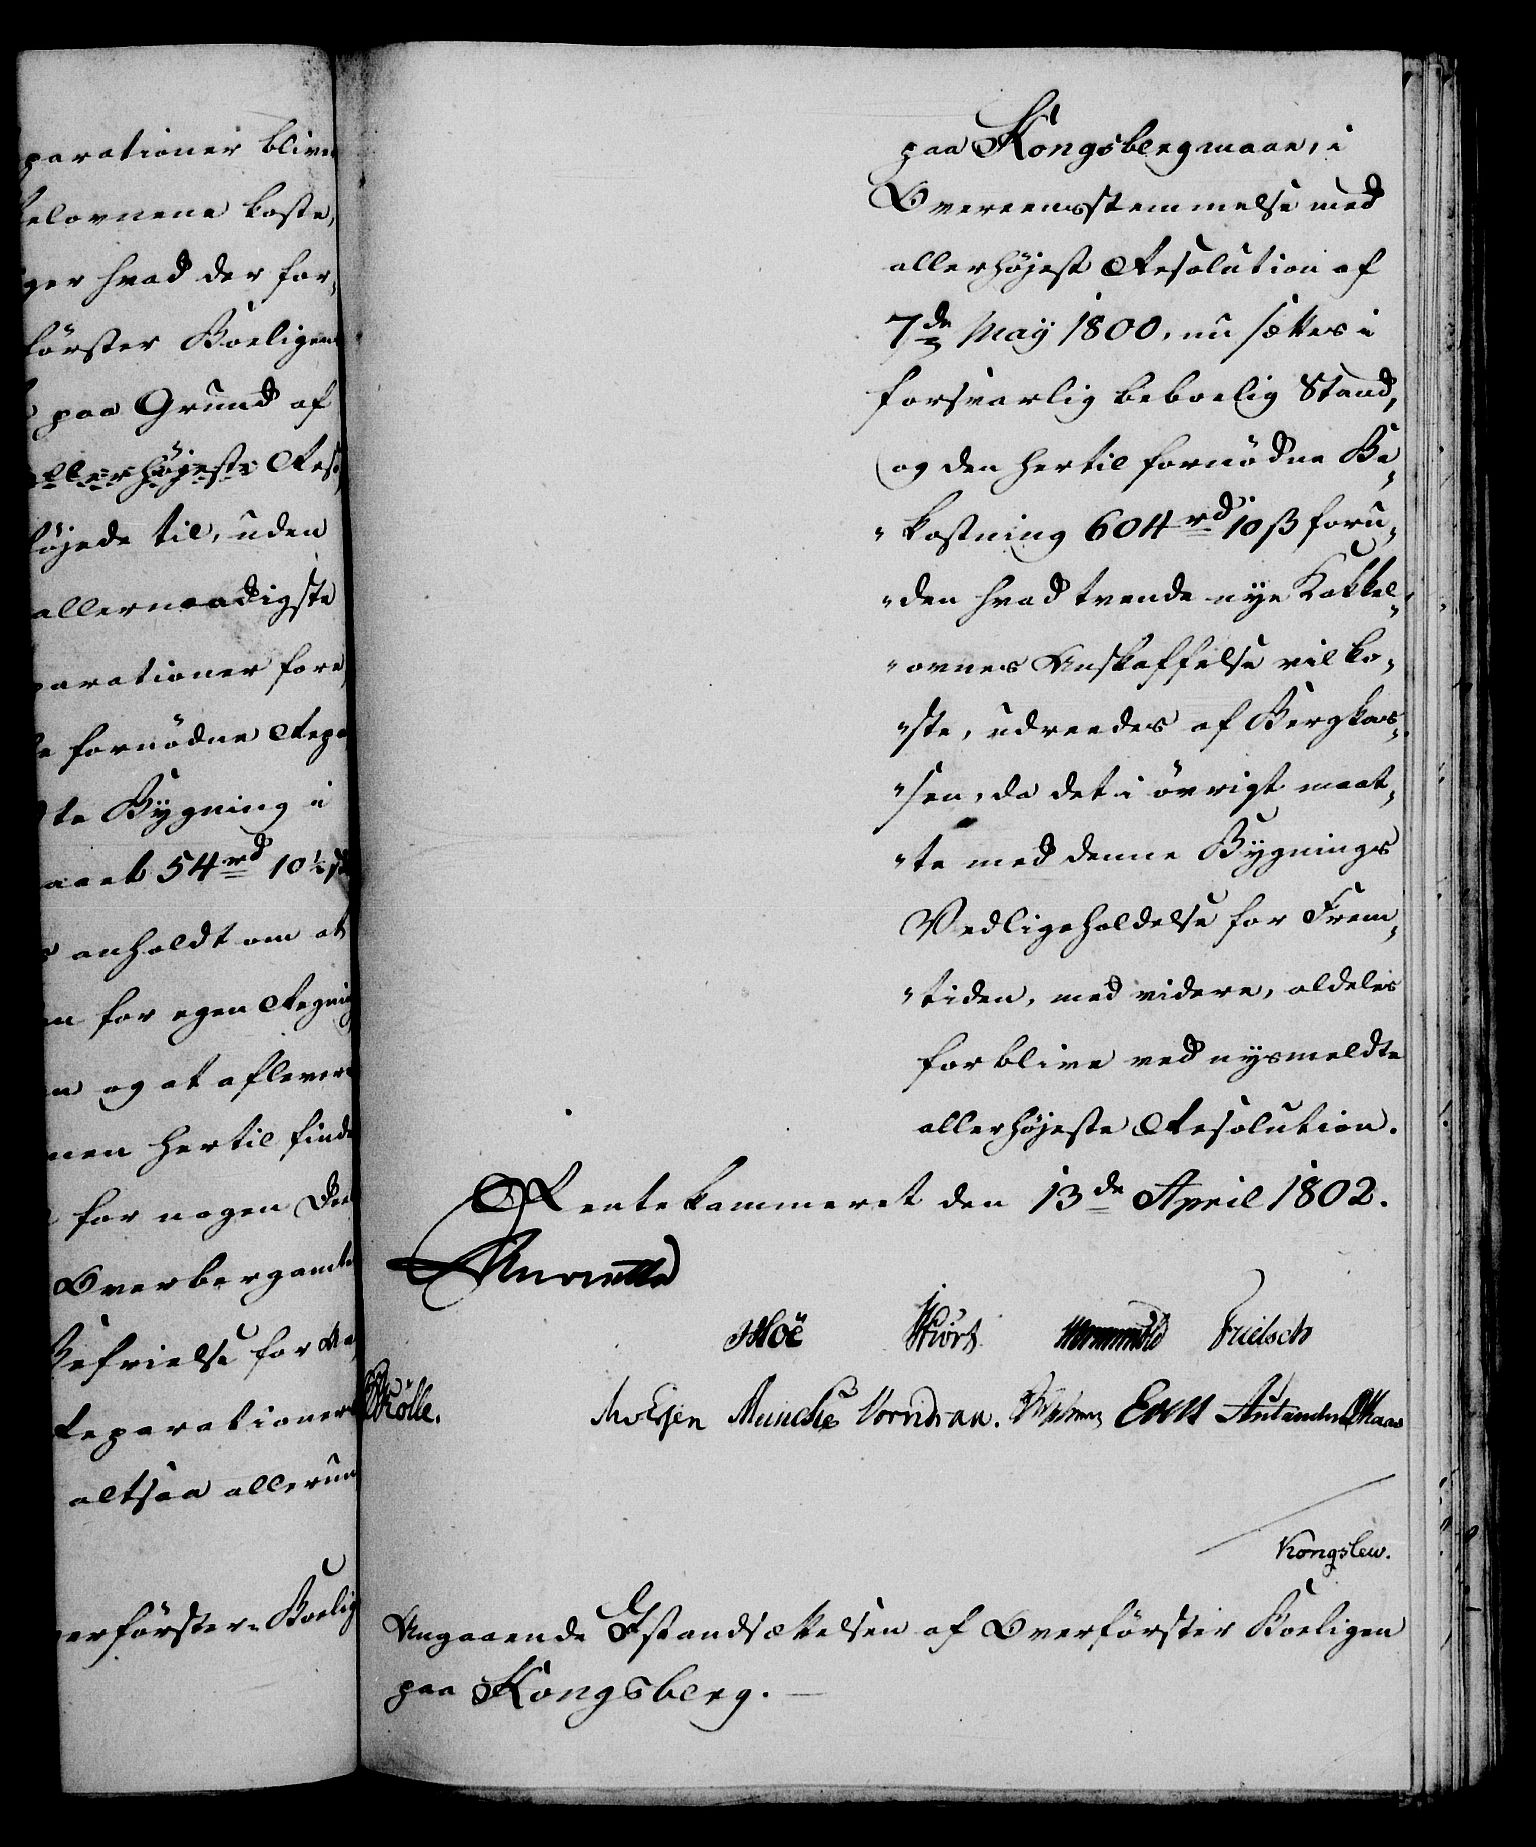 parationer blive
elovnene koste,
ger hvad der for-
förster Boeligen
paa Grund af
allerhöjeste Res.
föjede til, uden
allernaadigste
parationer fore
fornödne Repa
te Bygning i
54 rd 10½ ß
anholdt om at
for egen Regning
og at aflevere
men hertil finde
for nogen Deel
Overbergamte
Befrielse for
Reparationer
altsaa allerun
erförster-Boelig
paa Kongsberg maae, i
Overeensstemmelse med
allerhöjest Resolution af
7de May 1800, nu sættes i
forsvarlig beboelig Stand,
(og den hertil fornödne Be-
"kostning 604 rd 10 ß foru-
"den hvad tvende nye Kakkel-
"ovnes Anskaffelse vil ko-
"ste, udreedes af Bergkas-
"sen, da det i övrigt maat-
"te med denne Bygnings
Vedligeholdelse for Frem-
"tiden, med videre, aldeles
forblive ved nysmeldte
allerhöjeste Resolution.
Rentekammeret den 13de April 1802.
Moë Hiort Frielsch
Kölle. Munche Vornd
Kongslew.
Angaaende Istandsættelsen af Overförster Boeligen
paa Kongsberg. —